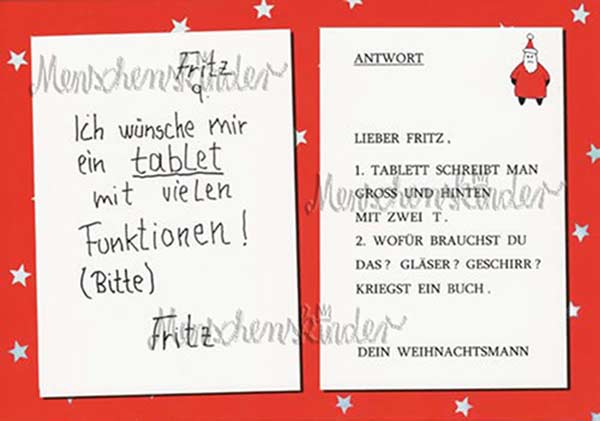 Fritz
9.
Ich wünsche mir
ein tablet
mit vielen
Funktionen!
(Bitte)
Fritz
ANTWORT
LIEBER FRITZ,
1. TABLETT SCHREIBT MAN
GROSS UND HINTEN
MIT ZWEI T.
2. WOFÜR BRAUCHST DU
DAS? GLÄSER? GESCHIRR?
KRIEGST EIN BUCH.
DEIN WEIHNACHTSMANN
Menschenskinder
Menschenskinder
Menschenskinder